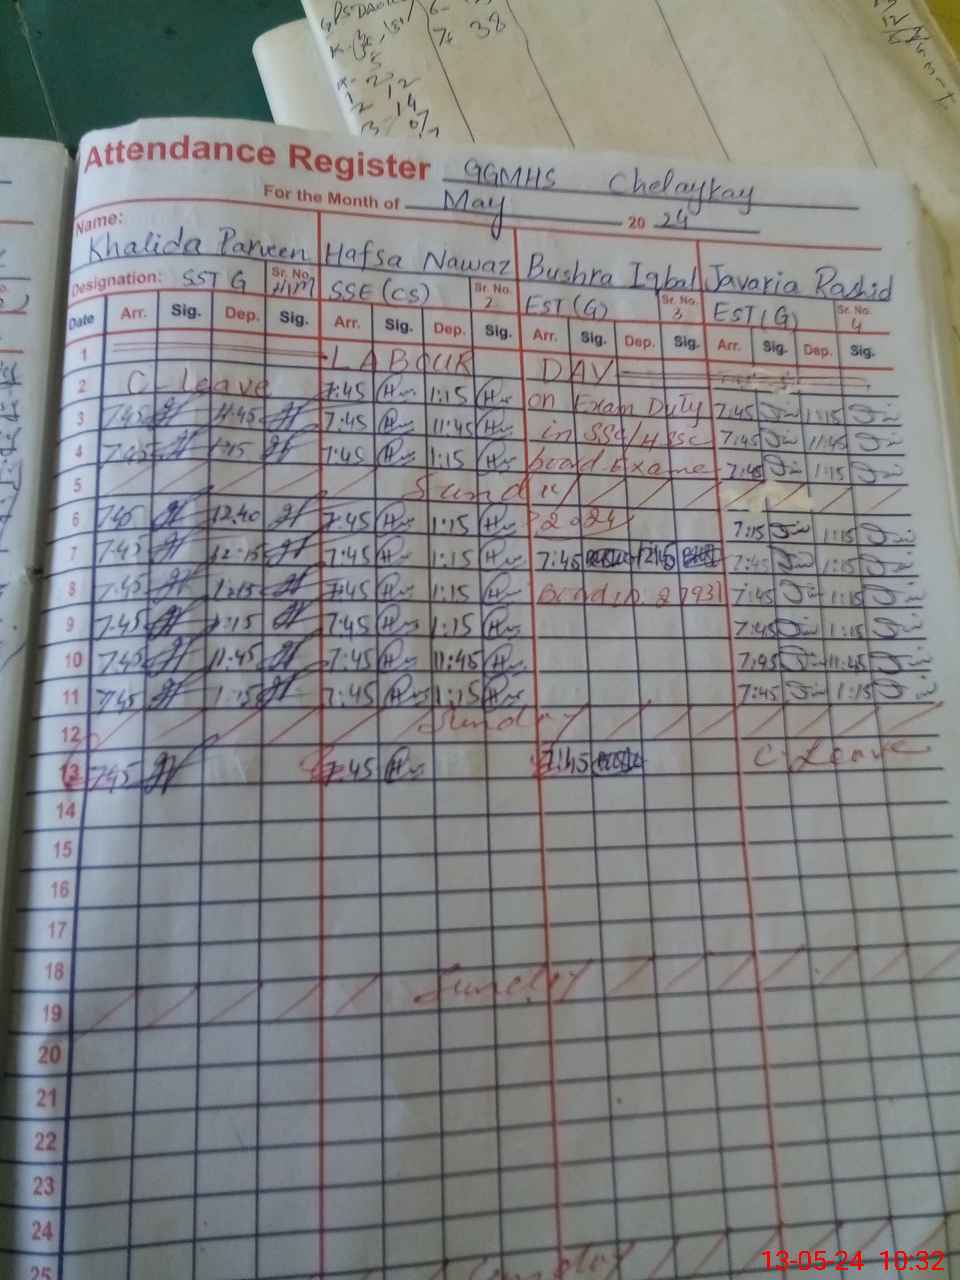 Attendance Register GGMHS Chelaykay
For the Month of May 20 24
Name:
Khalida Parveen Hafsa Nawaz Bushra Iqbal Javaria Rashid
Designation: SST G Sr. No. H/M SSE (CS) Sr. No. 2 EST (G) Sr. No. 3 EST (G) Sr. No. 4
Date Arr. Sig. Dep. Sig. Arr. Sig. Dep. Sig. Arr. Sig. Dep. Sig. Arr. Sig. Dep. Sig.
1 LABOUR DAY
2 C-leave 7:45 1:15 on Exam Duty 7:45 1:15
3 7:45 11:45 7:45 11:45 in SSC/HSSC 7:45 11:45
4 7:45 1:15 7:45 1:15 board Exame 7:45 1:15
5 Sunday
6 7:45 12:40 7:45 1:15 2024 7:15 1:15
7 7:45 12:15 7:45 1:15 7:45 12:45 7:45 1:15
8 7:45 1:15 7:45 1:15 7:45 1:15
9 7:45 1:15 7:45 1:15 7:45 1:15
10 7:45 11:45 7:45 11:45 7:45 11:45
11 7:45 1:15 7:45 1:15 7:45 1:15
12 Sunday
13 7:45 7:45 7:45 C-Leave
14
15
16
17
18
19 Sunday
20
21
22
23
24
25
13-05-24 10:32